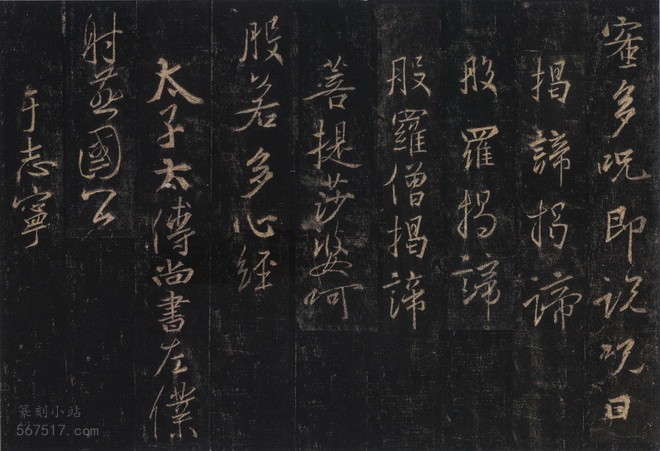 蜜多呪即説呪曰
揭諦揭諦
般羅揭諦
般羅僧揭諦
菩提莎婆呵
般若多心經
太子太傅尚書左僕
射燕國公
于志寧
篆刻小站
567517.com